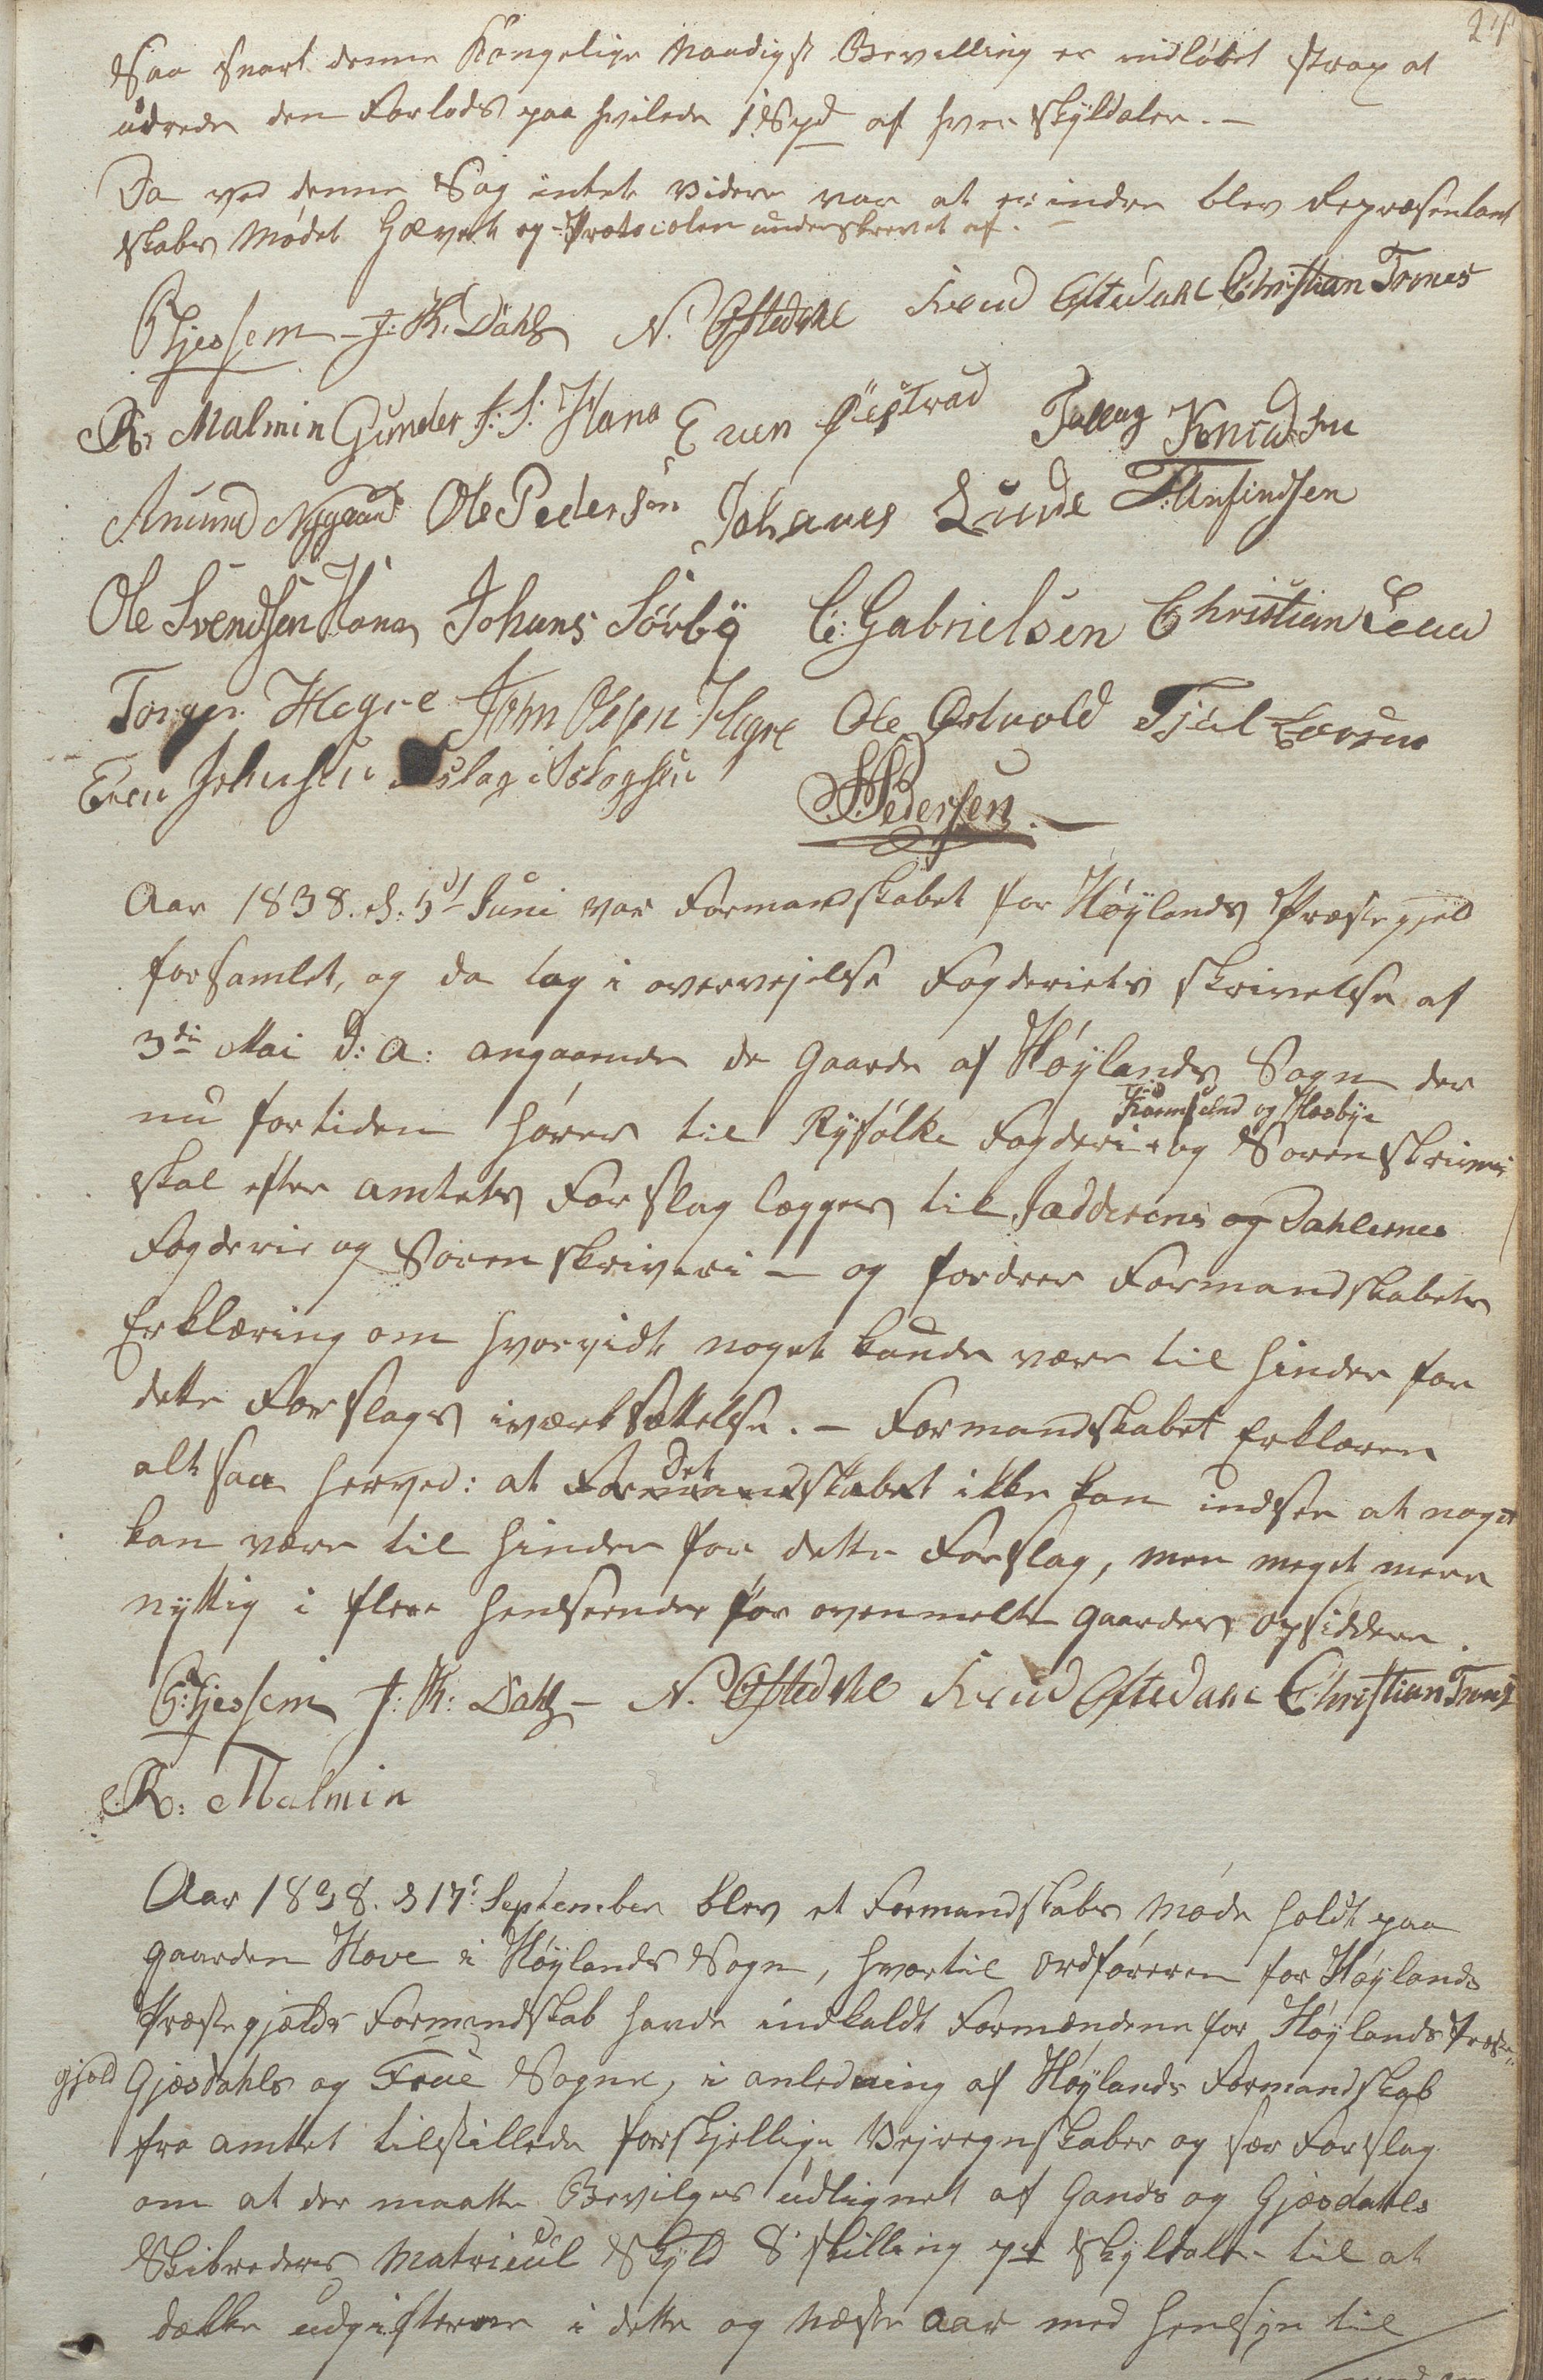 Saa snart denne Kongelige Naadigst Bevilling er indløbet strax at
udrede den Forlods paa hvilede 1 Spd af hver Skÿldaler. —
Da ved denne Sag intet videre var at erindre blev Repræsentant
skabs Mødet hævet og Protocolen underskrevet af. —
Gjessem J: K. Dahl N. Oftedahl Knud Oftedahl Christian Trones
R: Malmin Gunder J: S: Hana Even Østraad Tollag Knudsen
Amund Nÿgaard Ole Pedersen Johanes Lunde T. Ansindsen
Ole Svendsen Hana Johans Sørbÿ C: Gabrielsen Christian
Torger Hegre John Olsen Hegre Ole Østvold Tjel
Even Johnsen Aslag Aslagsen
Pedersen.
Aar 1838. d: 5t Juni var Formandskabet for Høÿlands Præstegjeld
forsamlet, og da tog i overvejelse Fogderiets skrivelse af
3die Mai d: A: angaaende de Gaarde af Høÿlands Sogn der
Karmsund og Hesbÿe
nu fortiden hører til Rÿfølke Fogderie og Sorenskriveri
skal efter Amtets Forslag lægges til Jædderens og Dahlernes
Fogderie og Sorenskriveri — og fordrer Formandskabets
Erklæring om hvorvidt noget kunde være til hinder for
dette Forslags iværksættelse. — Formandskabet Erklærer
Det
altsaa herved: at Formandskabet ikke kan indsee at noget
kan være til hinder for dette Forslag, men meget mere
nÿttig i flere henseender for ovenmelte Gaardes opsiddere.
G: Gjessem J: K: Dahl — N. Oftedahl Knud Oftedahl Christian Trones
R: Malmin
Aar 1838. d 17: September blev et Formandskabs Møde holdt paa
gaarden Hove i Høÿlands Sogn, hvortil Ordføreren for Høÿlands
Præstegjælds Formandskab havde indkaldt Formændene for Høÿlands Præste-
gjeld Gjesdahls og Frue Sogne, i anledning af Høÿlands Formandskab
fra Amtet tilstillede forskjellige Vejregnskaber og sær Forslag
om at der maatte Bevilges udlignet af Gands og Gjesdahls
Skibreders Matricul Skÿld 8 skilling pr Skÿldaler til at
dække udgifterne i dette og Næste Aar med hensÿn til